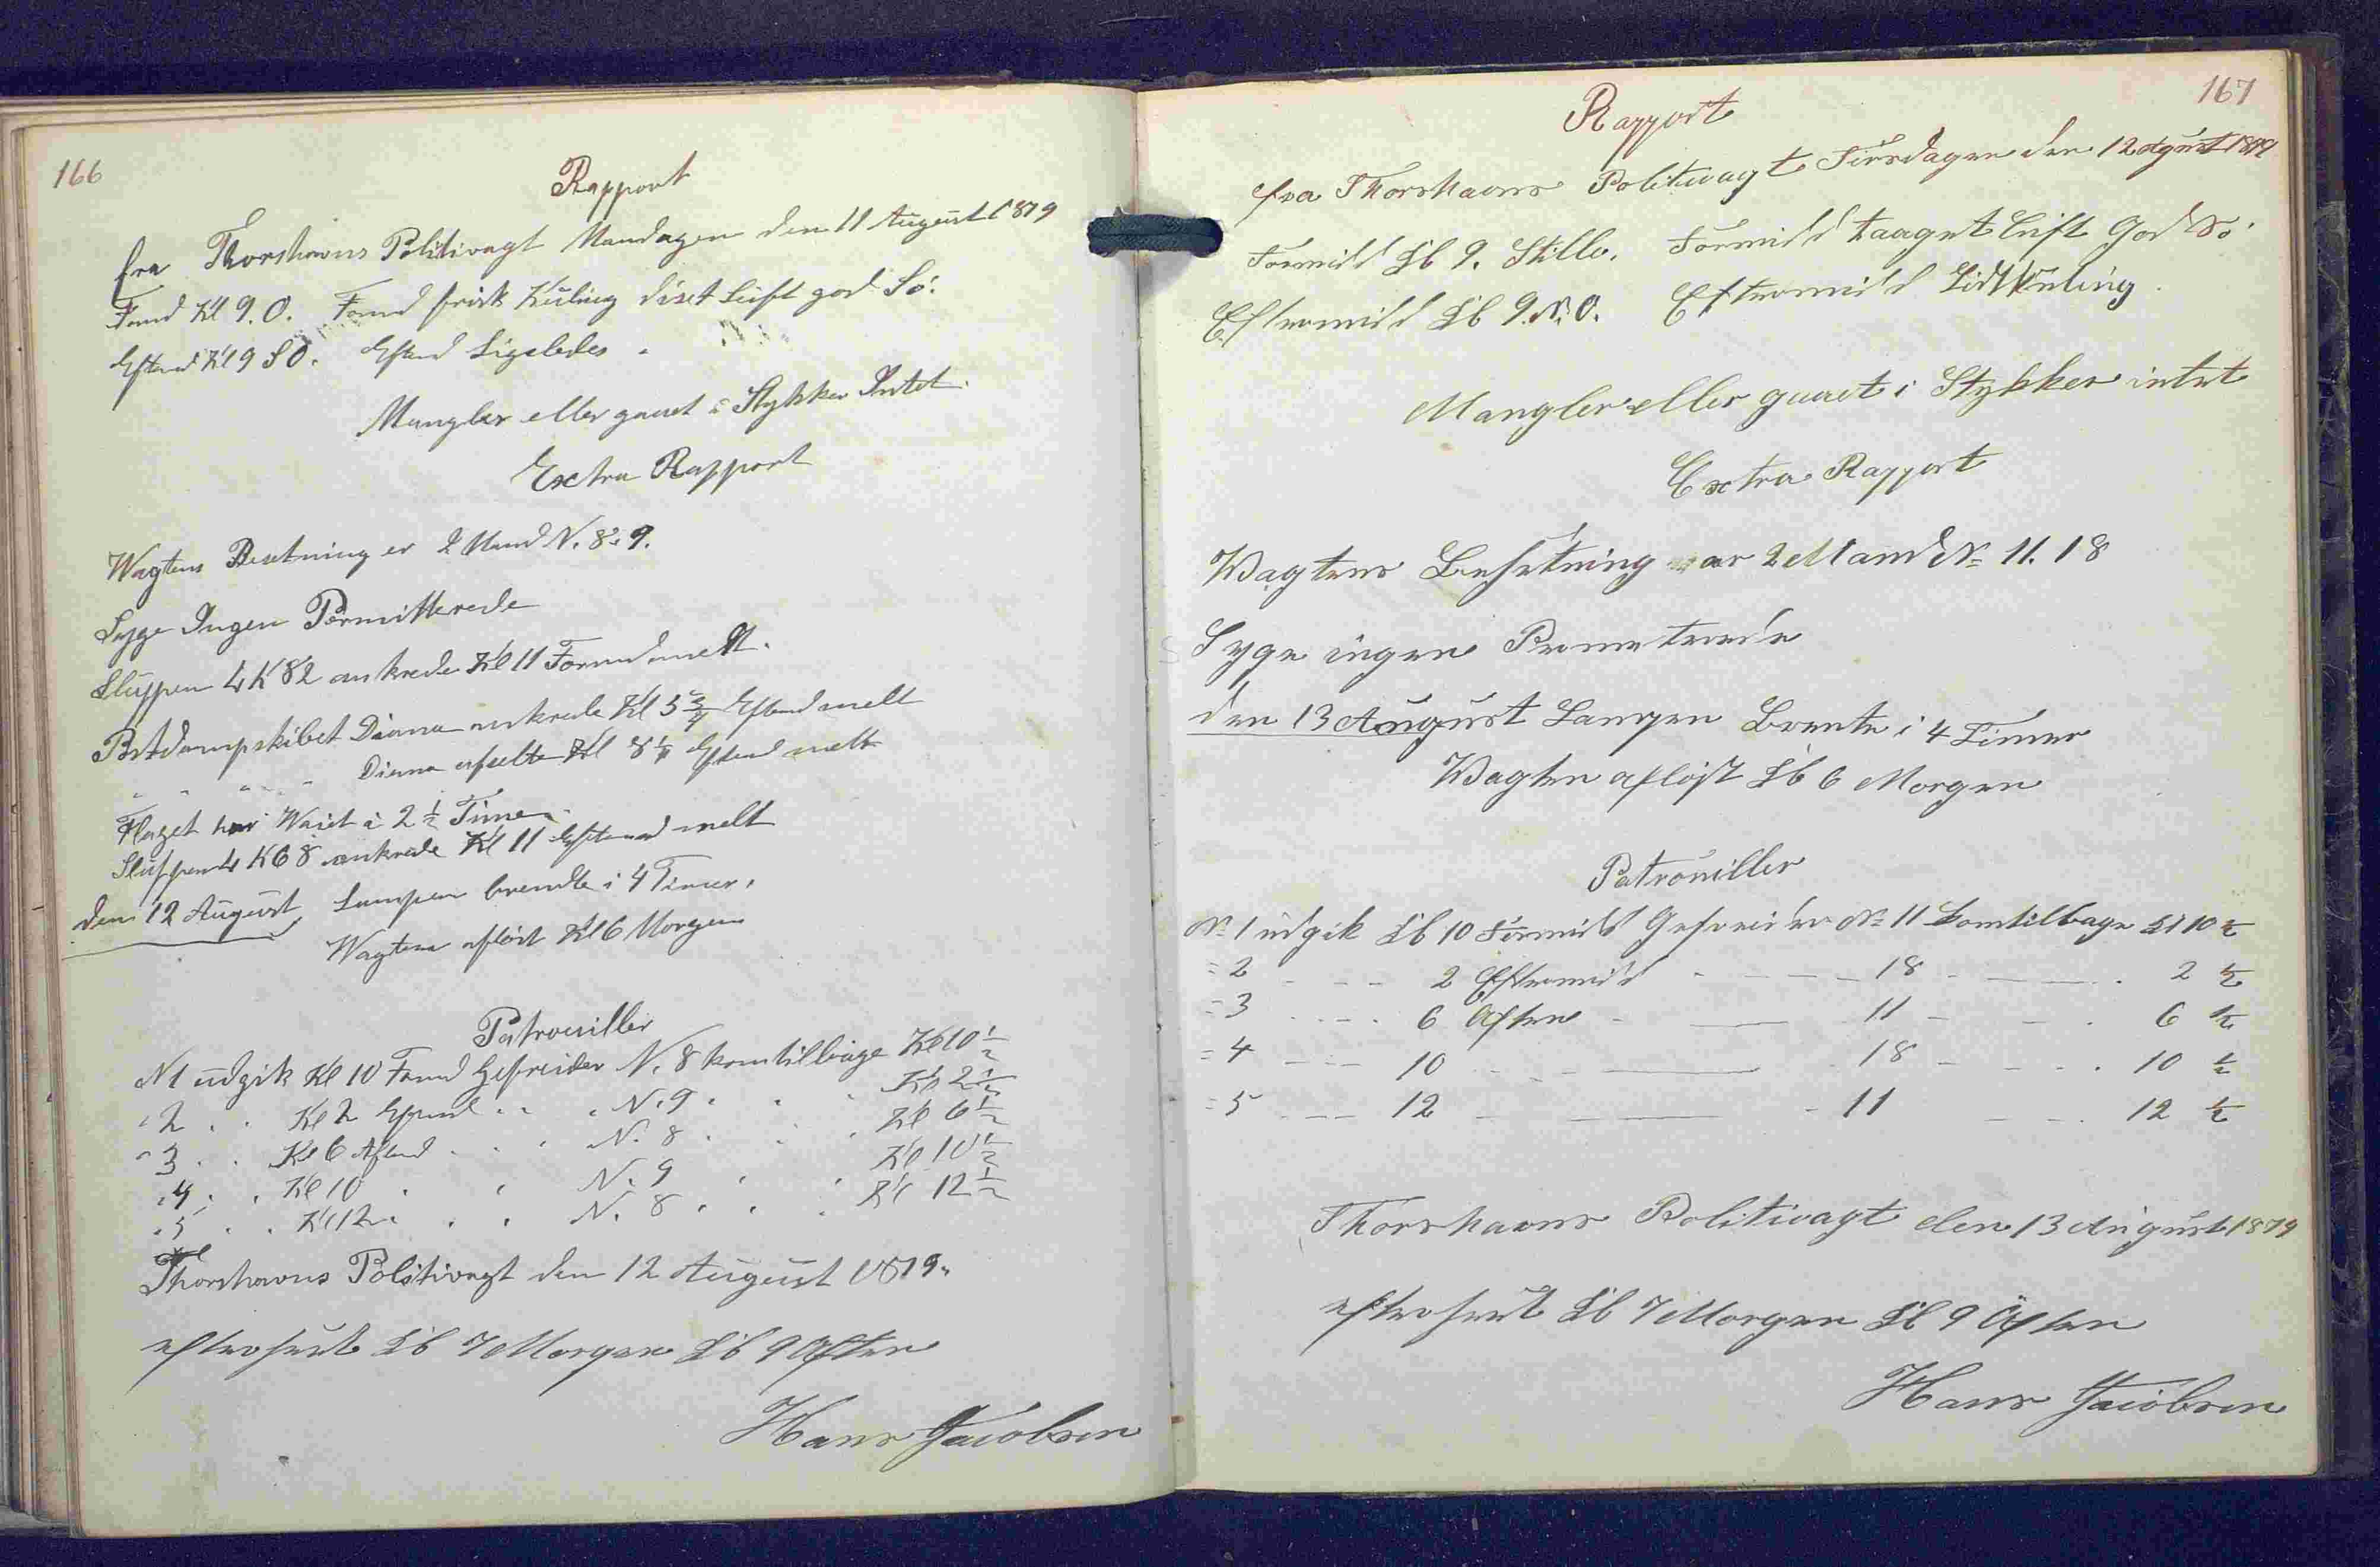 166
Rapport
fra Thorshavns Politivagt Mandagen den 11 August 1879
Formd Kl 9. O. Formd frisk Kuling diset Luft god Sö.
Eftmd Kl 9 SO. Eftmd Ligeledes.
Mangler eller gaaet i Stykker Intet.
Extra Rapport
Wagtens Besetning er 2 Mand N. 8. 9.
Syge Ingen Permitterede
Sluppen 4 K 82 ankrede Kl 11 Formd melt.
Postdampskibet Diana ankrede Kl 5 3/4 Eftmd melt
" " " Diana afseilte Kl 8 1/4 Eftmd melt
Flaget har Waiet i 2 1/2 Time.
Sluppen 4 K 68 ankrede Kl 11 Eftermd melt
den 12 August Lampen brendte i 4 Timer.
Wagten aflöst Kl 6 Morgen
Patrouiller
N 1 udgik Kl 10 Formd Gefreider N. 8 kom tilbage Kl 10 1/2
" 2 . . Kl 2 Eftmd . . . N. 9 . . . Kl 2 1/2
" 3 . . Kl 6 Aftend . . . N. 8 . . . Kl 6 1/2
" 4 . . Kl 10 . . N. 9 . . Kl 10 1/2
" 5 . . Kl 12 . . . N. 8 . . . Kl 12 1/2
Thorshavns Politivagt den 12 August 1879.
efterseet Kl 7 Morgen Kl 9 Aften
Hans Jacobsen
167
Rapport
fra Thorshavns Politivagt Tirsdagen den 12 August 1879
Formidd Kl 9. Stille. Formidd taaget Luft God Sö.
Eftermidd Kl 9. N. O. Eftermidd Lidt Kuling.
Mangler eller gaaet i Stykker intet
Extra Rapport
Wagtens Besetning var 2 Mand No 11. 18
Syge ingen Prometerede
den 13 August Lampen Brente i 4 Timer
Wagten aflöst Kl 6 Morgen
Patrouiller
No 1 udgik Kl 10 Formidd Gefreider No 11 Komtilbage Kl 10 1/2
= 2 - - - 2 Eftermidd - - - 18 - - 2 1/2
= 3 - - - 6 Aften - - 11 - - 6 1/2
= 4 - - - 10 - - 18 - - 10 1/2
= 5 - - - 12 - - 11 - - 12 1/2
Thorshavns Politivagt den 13 August 1879
efterseet Kl 7 Morgen Kl 9 Aften
Hans Jacobsen